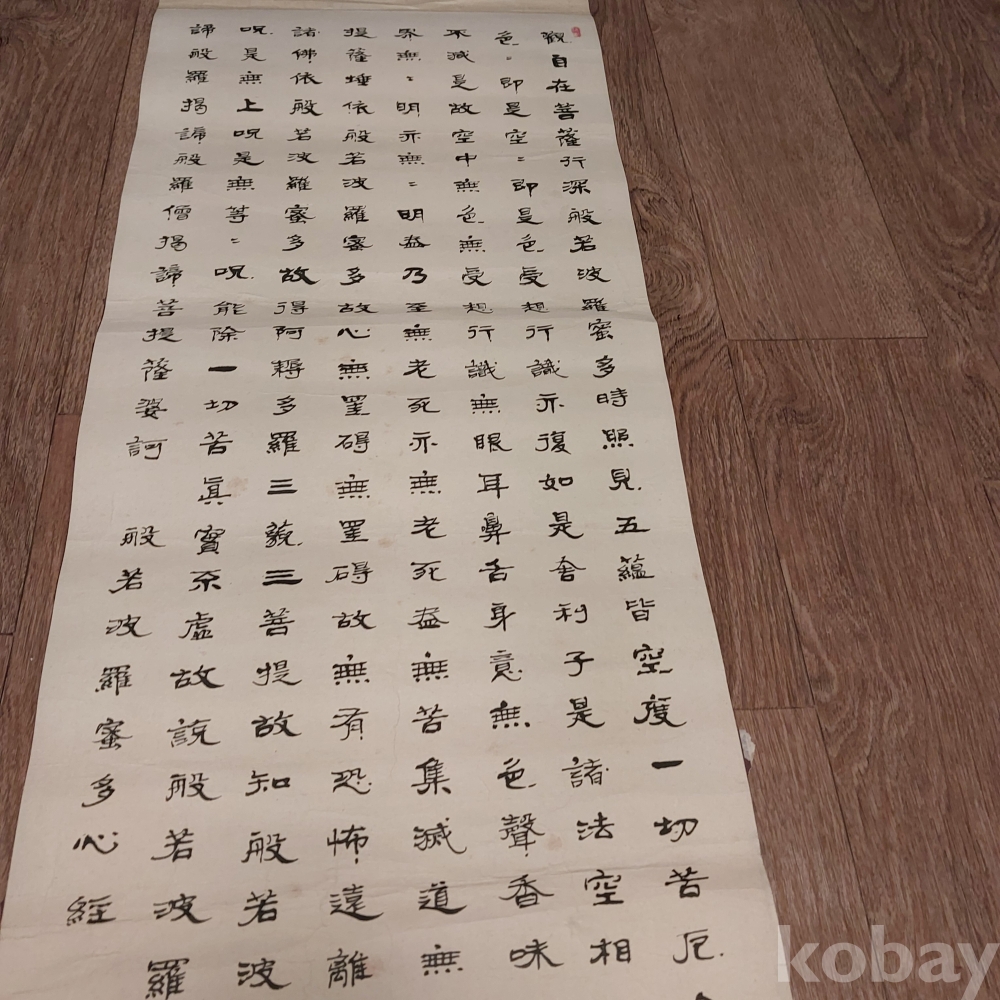 觀自在菩薩行深般若波羅蜜多時照見五蘊皆空度一切苦厄
色〻即是空〻即是色受想行識亦復如是舍利子是諸法空相
不滅是故空中無色無受想行識無眼耳鼻舌身意無色聲香味
界無〻明亦無〻明盡乃至無老死亦無老死盡無苦集滅道無
提薩埵依般若波羅蜜多故心無罣碍無罣碍故無有恐怖遠離
諸佛依般若波羅蜜多故得阿耨多羅三藐三菩提故知般若波
呪是無上呪是無等〻呪能除一切苦眞實不虛故說般若波羅
諦般羅揭諦般羅僧揭諦菩提薩婆訶 般若波羅蜜多心經
kobay